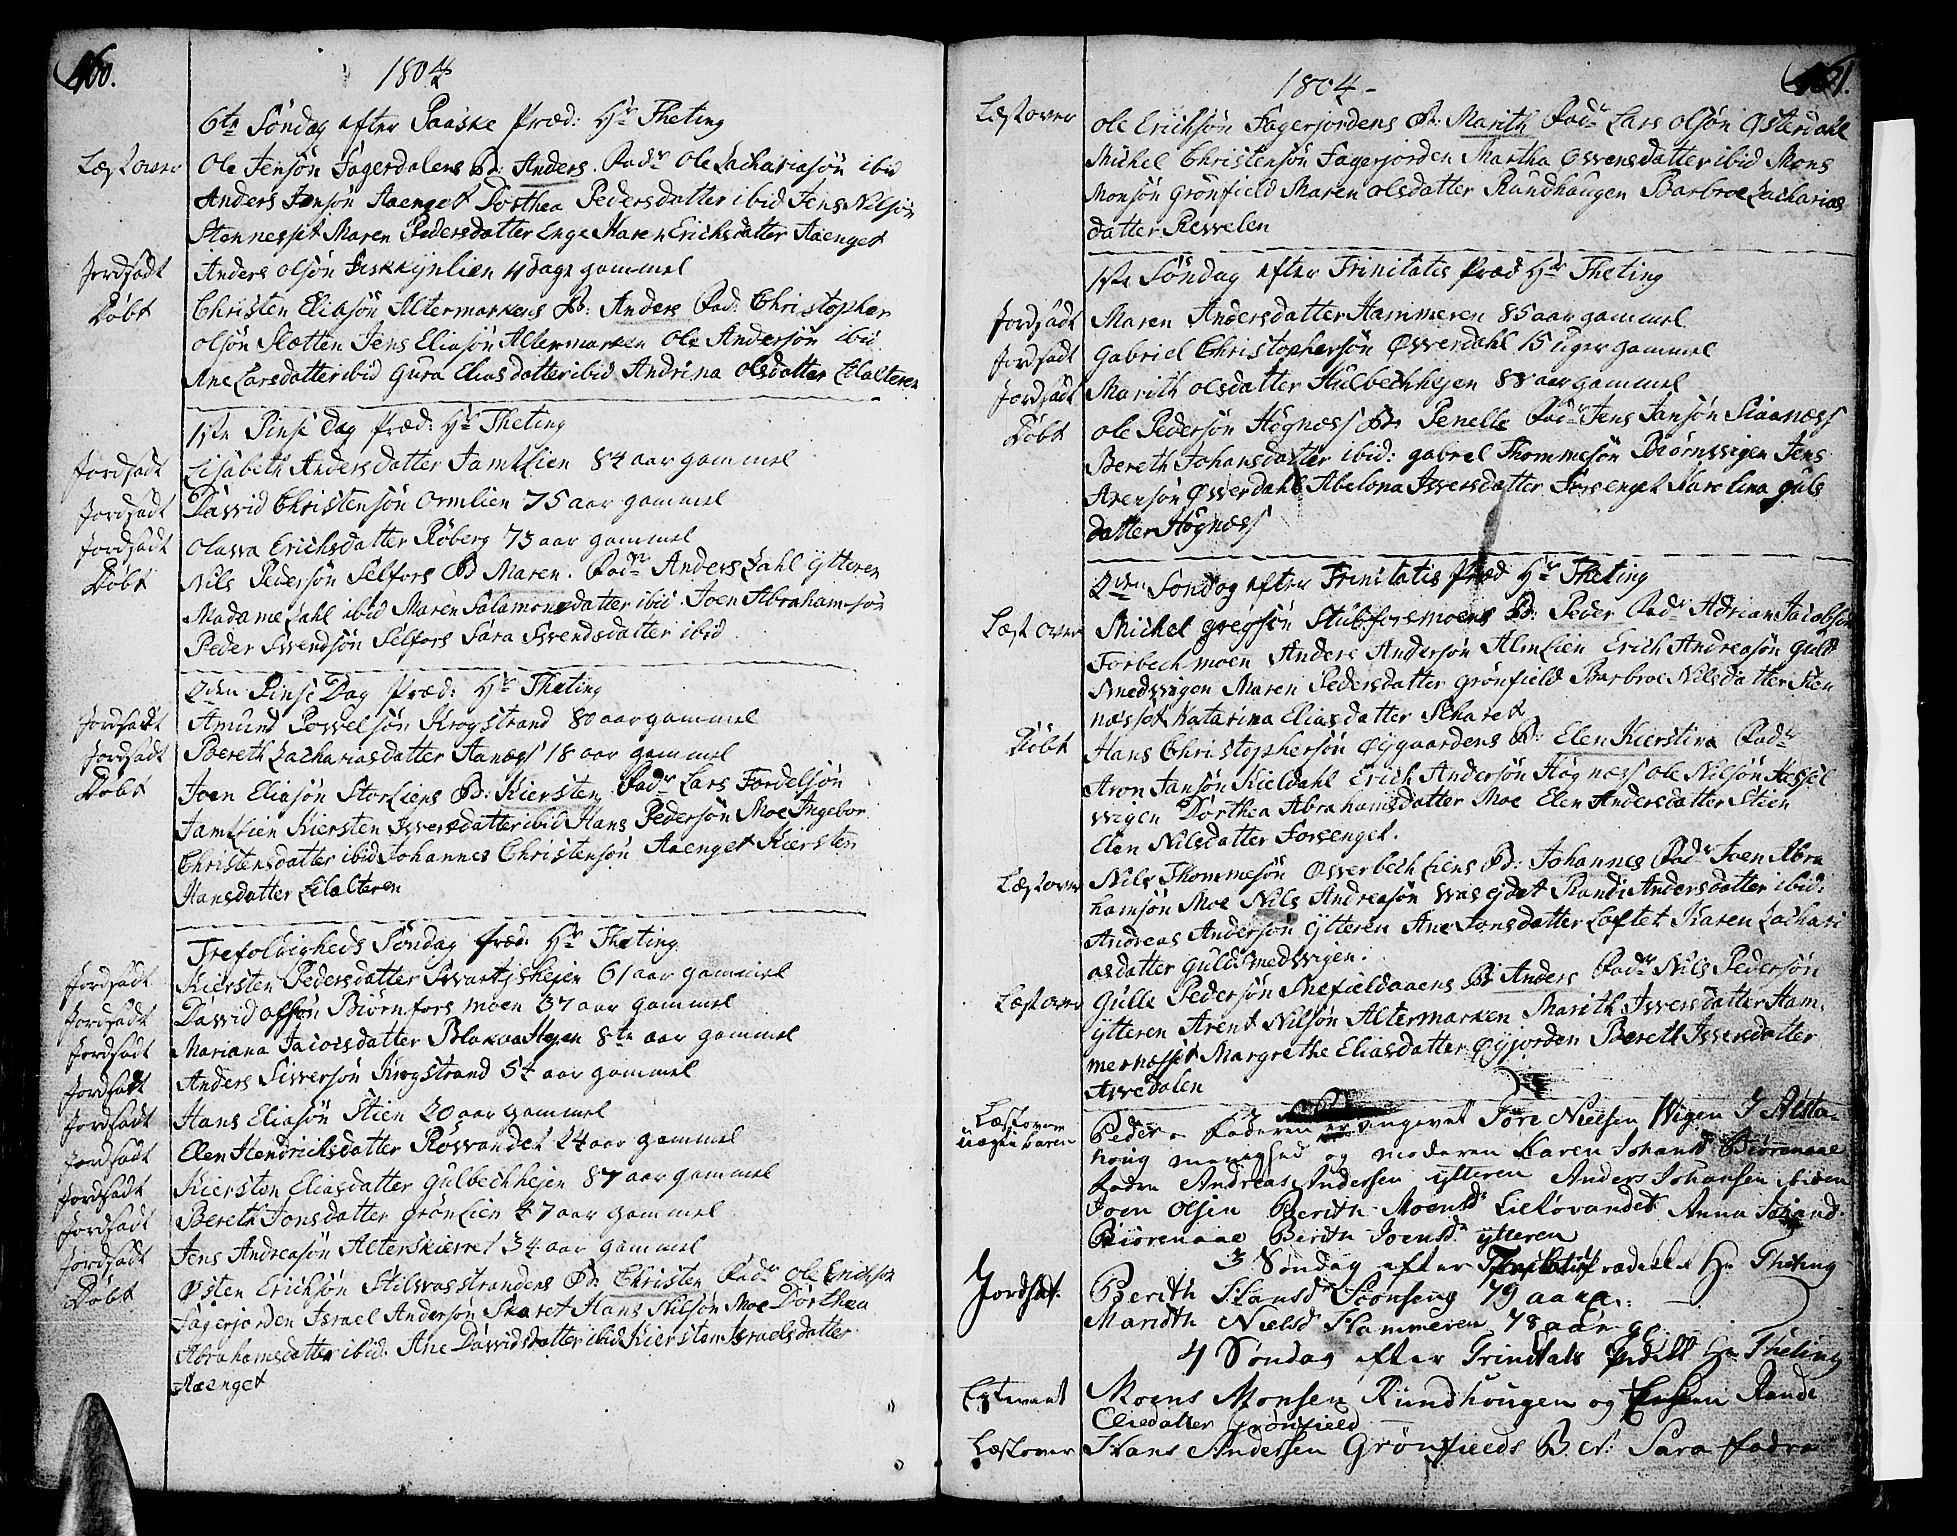 160.
1804
6te Söndag efter Paaske Præd: Hr Theting
Læst over Ole Jensön Fagerdalens B: Anders. Fadr Ole Zachariasön ibid
Anders Jensön Aaenget Dorthea Pedersdatter ibid Jens Nilsön
Stennesset Maren Pedersdatter Enge Karen Erichsdatter Aaenget
Jordfadt Anders olsön 4 dage gammel
Döbt Christen Eliasön Altermarkens B: Anders Fad: Christopher
olsön Sletten Jens Eliasön Altermarken Ole Andersön ibid
Ane Larsdatter ibid Gura Eliasdatter ibid Andrina olsdatter Lilalteren
1ste Pinse Dag Præd: Hr Theting
Jordfadt Lisabeth Andersdatter Jamtlien 84 aar gammel
Jordfadt David Christensön Ormlien 75 aar gammel
Jordfadt Olava Erichsdatter Röberg 73 aar gammel
Döbt Nils Pedersön Selfors B Maren. Fadr Anders Dahl Ytteren
Madame Dahl ibid Maren Salamonsdatter ibid. Joen Abrahamsön
Peder Svendsön Selfors Sara Svendsdatter ibid
2den Pinse Dag Præd: Hr Theting
Jordfadt Amund Povelsön Krogstrand 80 aar gammel
Jordfadt Bereth Zachariasdatter Aanæs 18 aar gammel
Döbt Joen Eliasön Storliens B: Kiersten Fadr Lars Fordelsön
Jamtlien Kiersten Iversdatter ibid Hans Pedersön Moe Ingebor
Christensdatter ibid Johannes Christensön Aaenget Kiersten
Hansdatter Lilalteren
Trefoldigheds Söndag Præd: Hr Theting
Jordfadt Kiersten Pedersdatter Svartishejen 61 aar gammel
Jordfadt David olsön Biörnforsmoen 37 aar gammel
Jordfadt Mariana Jacobsdatter 8te aar gammel
Jordfadt Anders Siversön Krogstrand 54 aar gammel
Jordfadt Hans Eliasön Stien 20 aar gammel
Jordfadt Elen Hendrichsdatter Rösvandet 24 aar gammel
Jordfadt Kiersten Eliasdatter Gulbechhejen 87 aar gammel
Jordfadt Bereth Jonsdatter Grönlien 27 aar gammel
Jordfadt Jens Andreasön Alterskierret 34 aar gammel
Döbt Östen Erichsön Stilvasstrandens B: Christen Fadr Ole Erichsön
Fagerjorden Israel Andersön Skaret Hans Nilsön Moe Dorthea
Abrahamsdatter ibid. Ane Davidsdatter ibid Kiersten Israelsdatter
Aaenget
161.
1804-
Læst over Ole Erichsön Fagerjordens B: Marith Fadr Lars Olsön Østerdahl
Michel Christensön Fagerjorden Martha Ovensdatter ibid Mons
Monsön Grönfield Maren olsdatter Rundhaugen Barbroe Zacharias
datter Revelen
1ste Söndag efter Trinitatis Præd Hr Theting
Jordfadt Maren Andersdatter Hammeren 85 aar gammel
Jordfadt Gabriel Christophersön Øverdahl 15 uger gammel
Jordfadt Marith olsdatter Hulbechhejen 88 aar gammel
Döbt Ole Pedersön Högnæss B: Penelle Fadr Jens Jansön
Bereth Johansdatter ibid: gabriel Thommesön Biörnvigen Jens
Arensön Øverdahl Abelona Iversdatter Forsenget Karolina Guls
datter Högnæss
2den Söndag efter Trinitatis Præd Hr Theting
Læst over Michel gregsön Stubforsmoens B: Peder Fadr Adrian Jacobsön
Forbechmoen Anders Andersön Almlien Erich Andreasön Guld
smedvigen Maren Pedersdatter Grönfield Barbroe Nilsdatter Sten
næsset Katarina Eliasdatter Skaret
Döbt Hans Christophersön Øygaardens B: Elen Kierstina Fadr
Aron Jansön Kieldahl Erich Andersön Högnæss Ole Nilsön Hessel
vigen Dorthea Abrahamsdatter Moe Elen Andersdatter Stien
Elen Nilsdatter Forsenget.
Læst over Nils Thommesön Øverbechliens B: Johannes Fadr Joen Abra
hamsön Moe Nils Andreasön Randi Andersdatter ibid:
Andreas Andersön Ytteren Ane Jonsdatter Loftet Karen Zachari
asdatter Guldsmedvigen.
Læst over Gulle Pedersön B: Anders Fadr Nils Pedersön
Ytteren Arent Nilsön Altermarken Marith Iversdatter Ham
mernæsset Margrethe Eliasdatter Øyjorden Bereth Iversdatter
Avedalen
Læst over uægte baren Peder - Faderen er angivet Tore Nielsen Wigen I Alsta-
houg menighed og moderen Karen Johansd Biörenaae
fadre Andreas Andersen ytteren Anders Johansen ibiden
Joen Olsen Berith Moensdr Anna Johansd
Biörenaae Berith Joensdr ytteren
3 Söndag efter Hr Theting
Jordfat. Berith Hansdr 79 aar
Maridth Nielsd Hammeren 78 aar g
4 Söndag efter Trinitats Hr Theting
Moens Monsen Rundhougen og Rande
Eliedatter Grönfield
Læst over Hans Andersen Grönfields B. n: Sara fadre